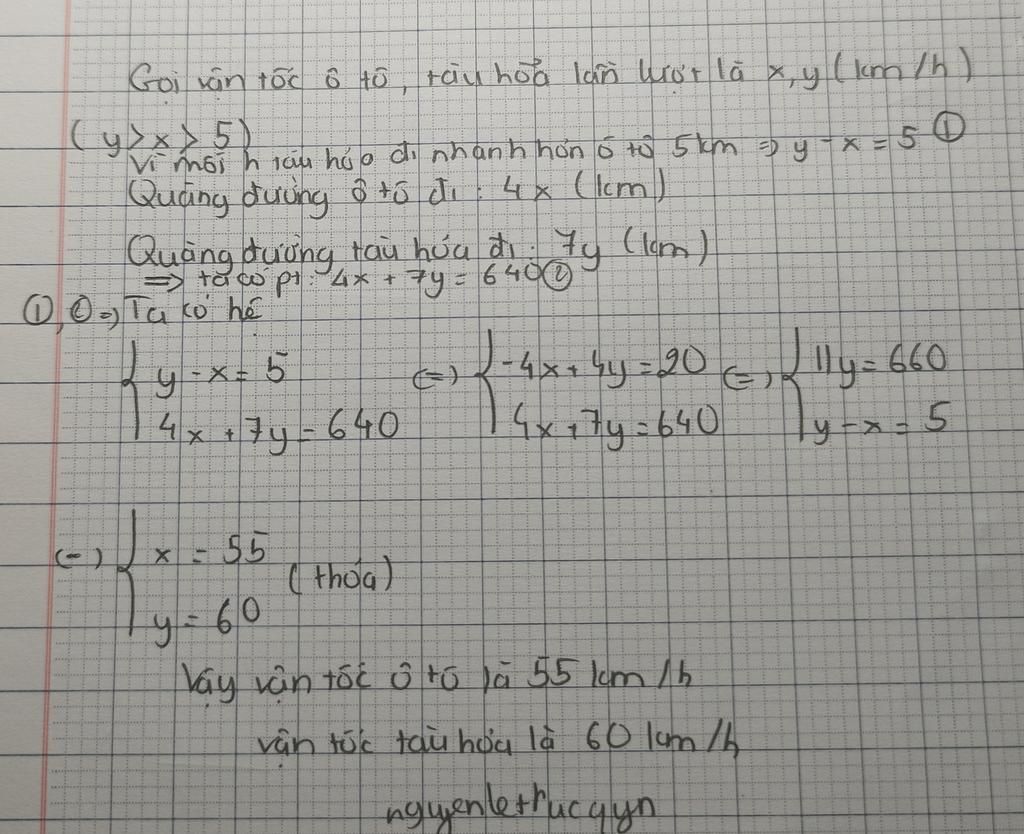 Gọi vận tốc ô tô, tàu hỏa lần lượt là x, y (km/h)
(y > x > 5)
Vì mỗi h tàu hỏa đi nhanh hơn ô tô 5km => y - x = 5 ①
Quãng đường ô tô đi : 4x (km)
Quãng đường tàu hỏa đi : 7y (km)
=> ta có pt: 4x + 7y = 640 ②
①, ② => Ta có hệ
{ y - x = 5 (=) { -4x + 4y = 20 (=) { 11y = 660
4x + 7y = 640 4x + 7y = 640 y - x = 5
(=) { x = 55 (thỏa)
y = 60
Vậy vận tốc ô tô là 55 km/h
vận tốc tàu hỏa là 60 km/h
nguyenlethucqyn